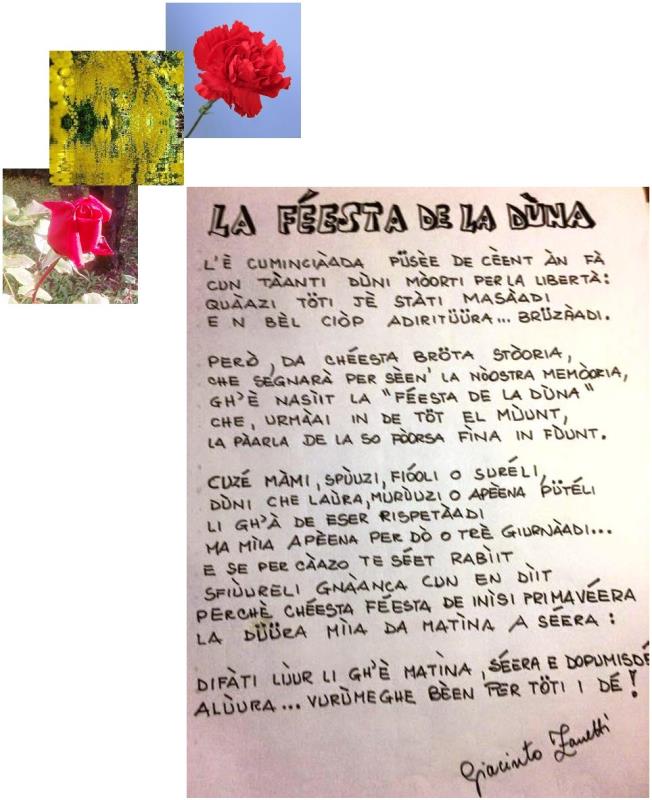 LA FÉESTA DE LA DÙNA
L'È CUMINCIÀADA PÜSÈE DE CÈENT ÀN FÀ
CUN TÀANTI DÙNI MÒORTI PER LA LIBERTÀ:
QUÀAZI TÖTI JÈ STÀTI MASÀADI
E N BÈL CIÒP ADIRITÜÜRA... BRÜZÀADI.
PERÒ, DA CHÉESTA BRÖTA STÒORIA,
CHE SEGNARÀ PER SÈEN' LA NÒOSTRA MEMÒORIA,
GH'È NASÌIT LA "FÉESTA DE LA DÙNA"
CHE, URMÀAI IN DE TÖT EL MÙUNT,
LA PÀARLA DE LA SO FÒORSA FÌNA IN FÙUNT.
CUZÉ MÀMI, SPÙUZI, FIÓOLI O SURÉLI,
DÙNI CHE LAÙRA, MURÙUZI O APÈENA PÜTÉLI
LI GH'À DE ESER RISPETÀADI
MA MÌIA APÈENA PER DÒ O TRÈ GIURNÀADI...
E SE PER CÀAZO TE SÉET RABÌIT
SFIÙURELI GNÀANCA CUN EN DÌIT
PERCHÈ CHÉESTA FÉESTA DE INÌSI PRIMAVÉERA
LA DÜÜRA MÌIA DA MATÌNA A SÉERA:
DIFÀTI LÙUR LI GH'È MATÌNA, SÉERA E DOPUMISDÉ
ALÙURA... VURÙMEGHE BÈEN PER TÖTI I DÉ!
Giacinto Zanetti